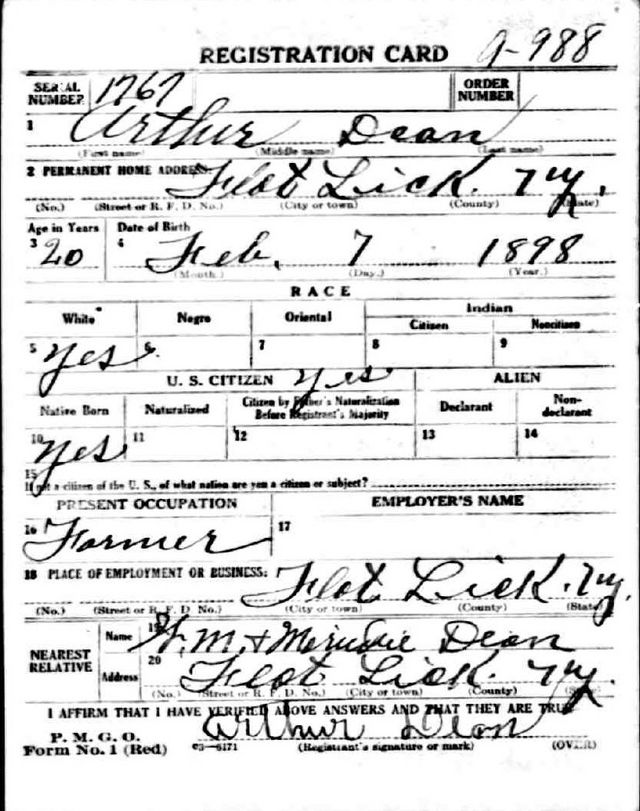 REGISTRATION CARD 9-988
SERIAL NUMBER 1767 ORDER NUMBER
1 Arthur Dean
(First name) (Middle name) (Last name)
2 PERMANENT HOME ADDRESS: Flat Lick. Ky.
(No.) (Street or R. F. D. No.) (City or town) (County) (State)
Age in Years Date of Birth
3 20 4 Feb. 7 1898
(Month.) (Day.) (Year.)
RACE
White Negro Oriental Indian
Citizen Noncitizen
5 Yes 6 7 8 9
U. S. CITIZEN Yes ALIEN
Native Born Naturalized Citizen by Father's Naturalization Before Registrant's Majority Declarant Non-declarant
10 Yes 11 12 13 14
15
If not a citizen of the U. S., of what nation are you a citizen or subject?
PRESENT OCCUPATION EMPLOYER'S NAME
16 Farmer 17
18 PLACE OF EMPLOYMENT OR BUSINESS: Flat Lick. Ky.
(No.) (Street or R. F. D. No.) (City or town) (County) (State)
NEAREST RELATIVE Name 19 M. + Dean
Address 20 Flat Lick. Ky.
(No.) (Street or R. F. D. No.) (City or town) (County) (State)
I AFFIRM THAT I HAVE VERIFIED ABOVE ANSWERS AND THAT THEY ARE TRUE
P. M. G. O. Arthur Dean
Form No. 1 (Red) c3—6171 (Registrant's signature or mark) (OVER)